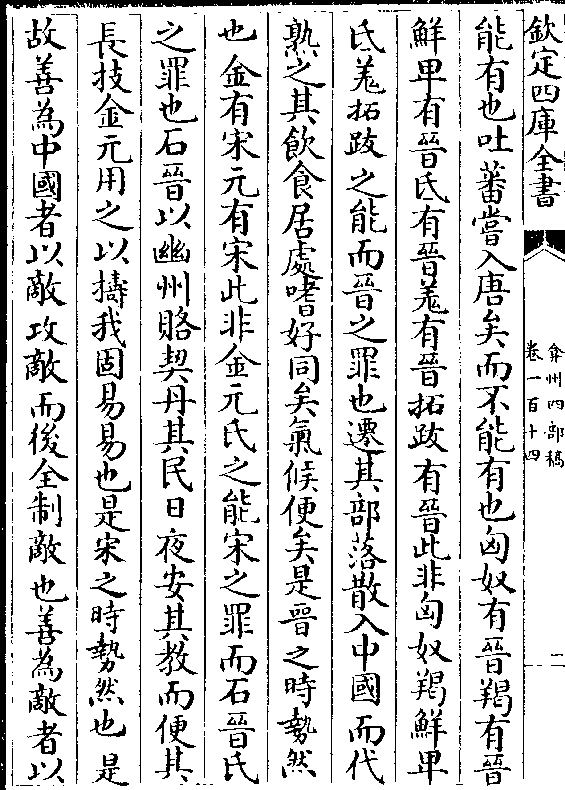 欽定四庫全書
弇州四部稿
卷一百十四
二
能有也吐蕃嘗入唐矣而不能有也匈奴有晉羯有晉
鮮卑有晉氐有晉羗有晉拓跋有晉此非匈奴羯鮮卑
氐羗拓跋之能而晉之罪也遷其部落散入中國而代
熟之其飲食居處嗜好同矣氣候便矣是晉之時勢然
也金有宋元有宋此非金元氏之能宋之罪而石晉氏
之罪也石晉以幽州賂契丹其民日夜安其教而便其
長技金元用之以擣我固易易也是宋之時勢然也是
故善為中國者以敵攻敵而後全制敵也善為敵者以